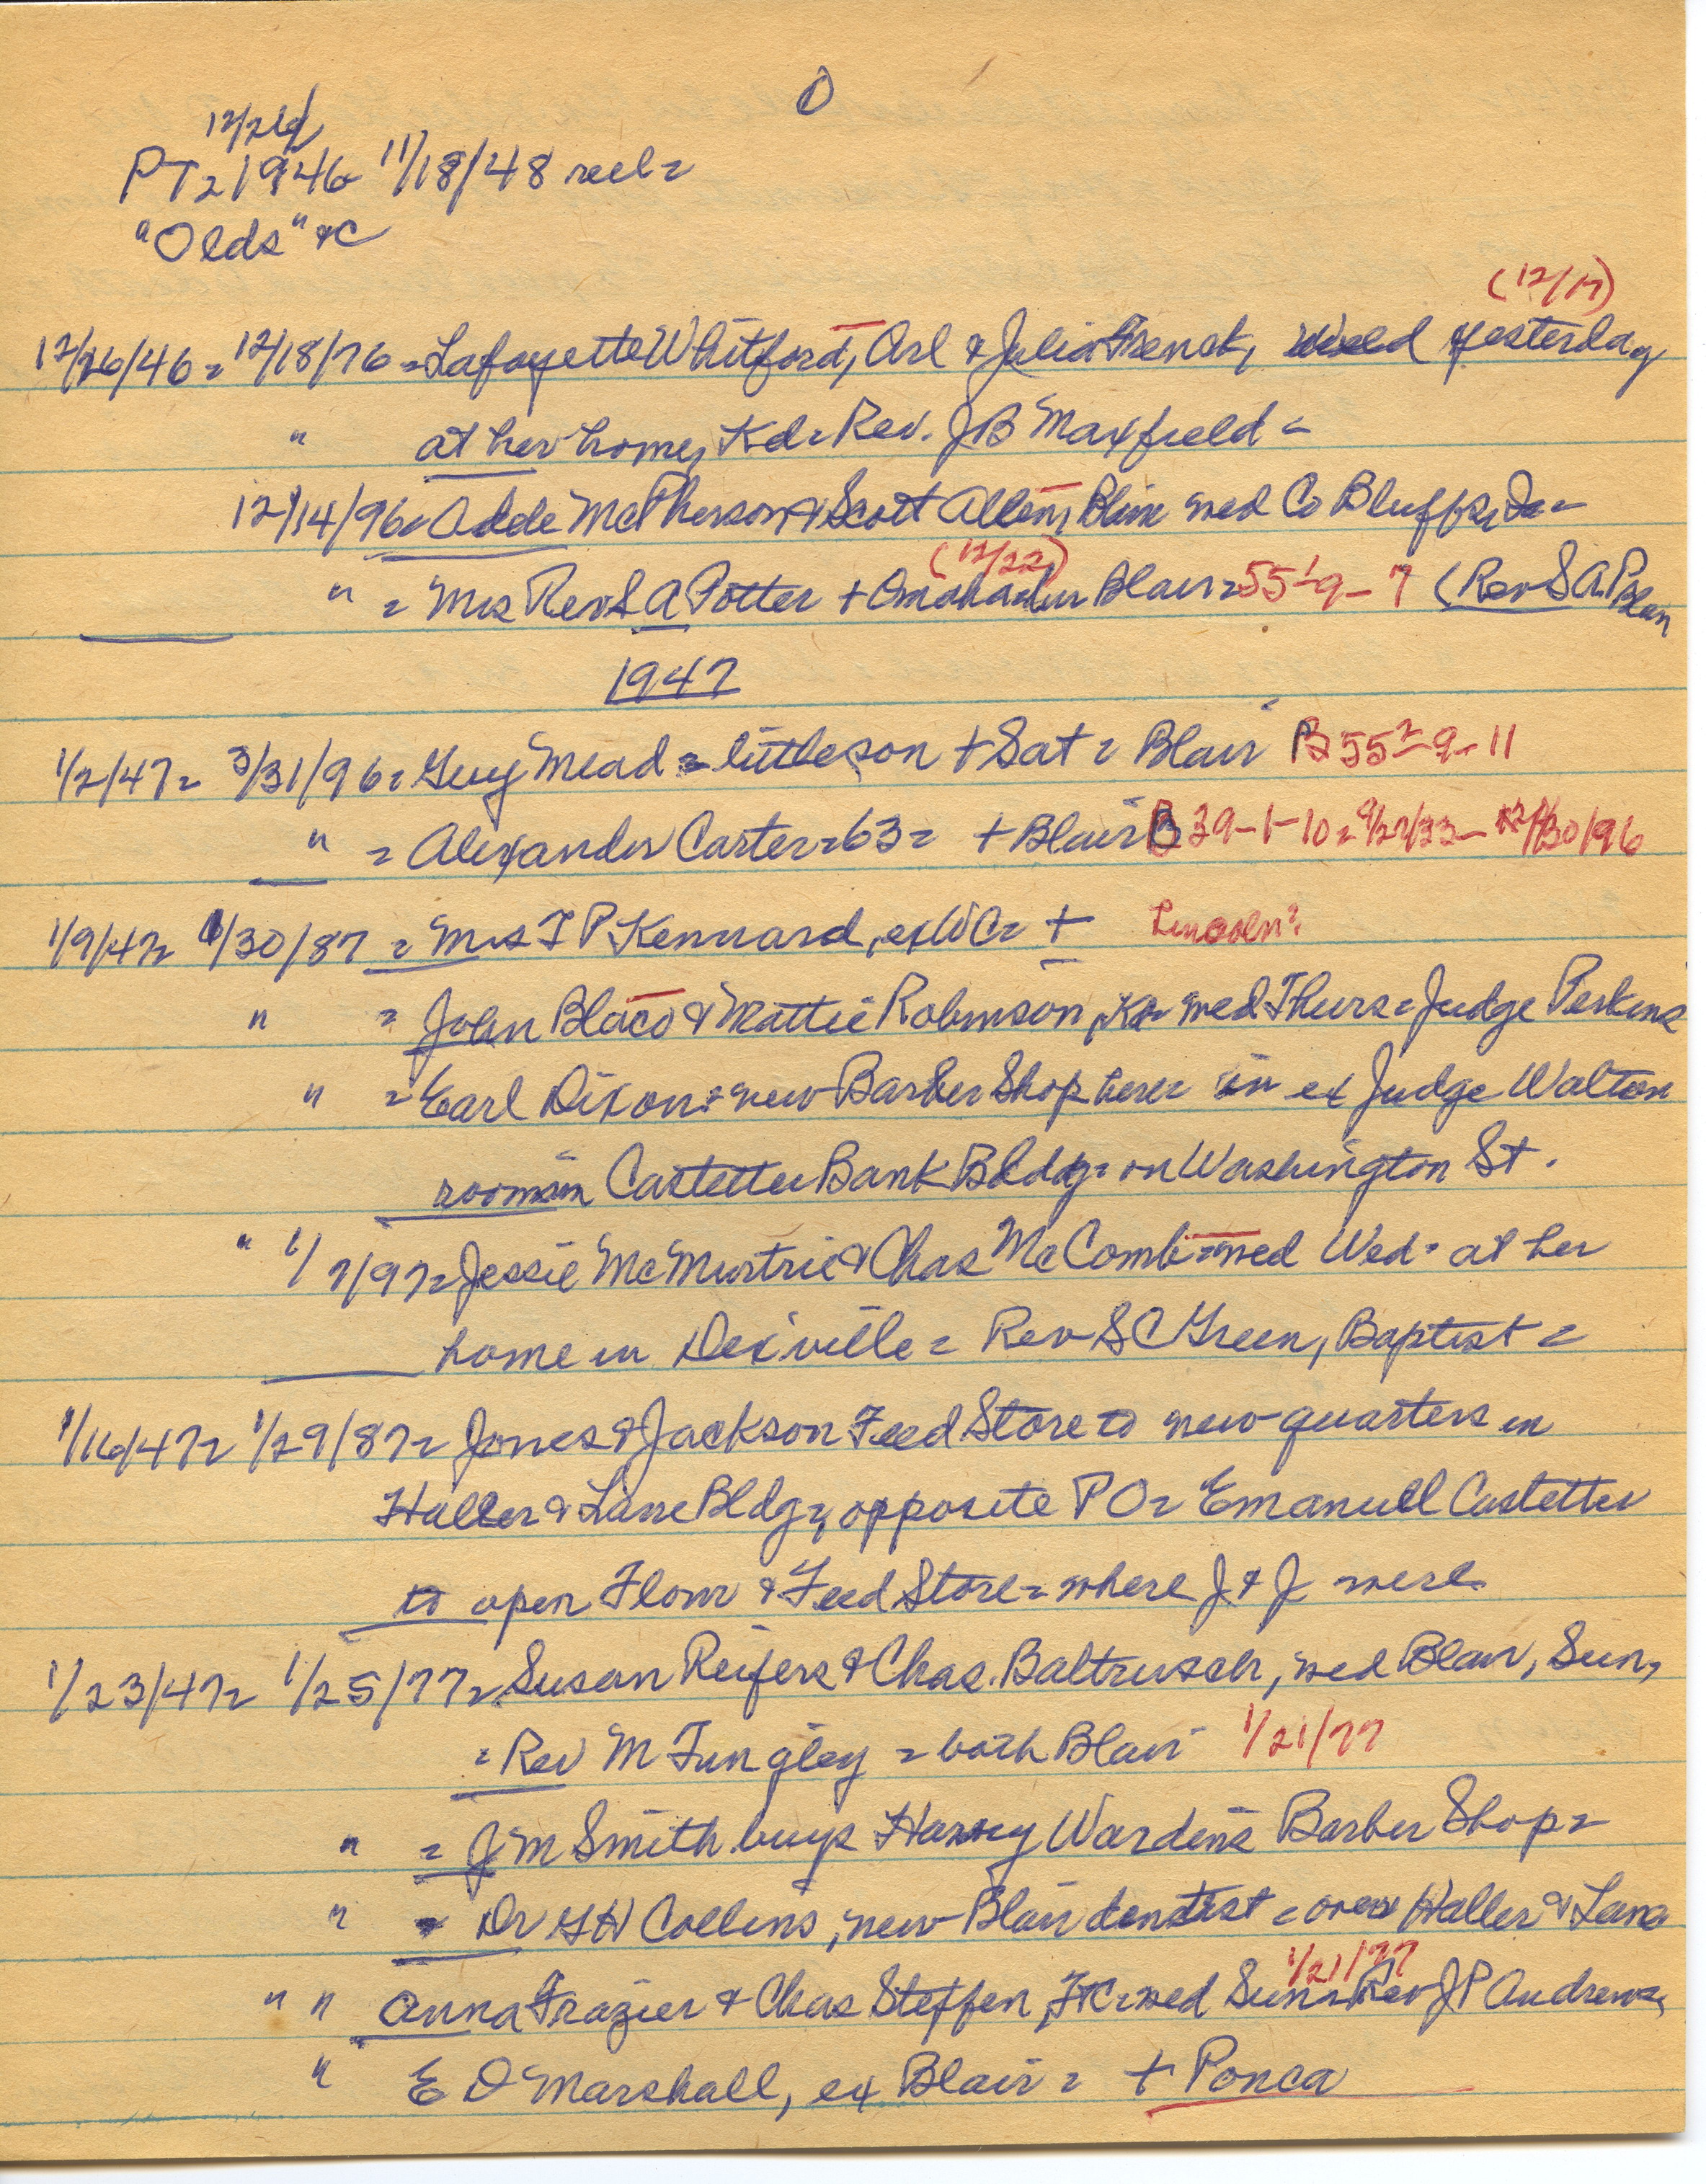 12/26/
PT = 1946 11/18/48 reel =
"Olds" &c
(12/17)
12/26/46 = 12/18/76 = Lafayette Whitford, Arl & Julia, wed yesterday
" at her home, Kd = Rev. J B Maxfield =
12/14/96 = Adde McPherson & Scott Allen, Blair wed Co Bluffs, Ia =
(12/22)
" = Mrs Rev S A Potter + Omaha = bur Blair = 55-1-9-7 (Rev S A P Blair
1947
1/2/47 = 3/31/96 = Guy Mead = little son + Sat = Blair B 55-2-9-11
" = Alexander Carter = 63 = + Blair B 39-1-10 = 9/27/33 - 12/30/96
1/9/47 = 1/30/87 = Mrs T P Kennard, ex WC = + Lincoln?
" = John Blaco & Mattie Robinson, wed Thurs = Judge Perkins
" = Earl Dixon = new Barber Shop here in ex Judge Walton
room in Castetter Bank Bldg = on Washington St.
" 1/7/97 = Jessie McMurtrie & Chas McComb = wed Wed = at her
home in Dexville = Rev S C Green, Baptist =
1/16/47 = 1/29/87 = Jones & Jackson Feed Store to new quarters in
Haller & Lane Bldg, opposite PO = Emanuell Castetter
to open Flour & Feed Store = where J & J were.
1/23/47 = 1/25/77 = Susan Reifers & Chas. Baltrusch, wed Blair, Sun,
= Rev M Tungley = both Blair 1/21/77
" = J M Smith buys Harvey Warden's Barber Shop =
" = Dr G H Collins, new Blair dentist = over Haller & Lane
1/21/77
" " Anna Frazier & Chas Steffen, FC = wed Sun = Rev J P Andrews,
" E D Marshall, ex Blair = + Ponca